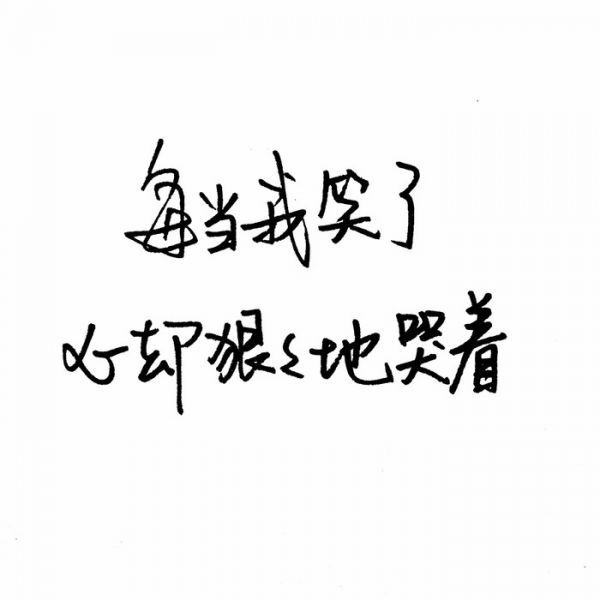 每当我笑了
心却狠々地哭着